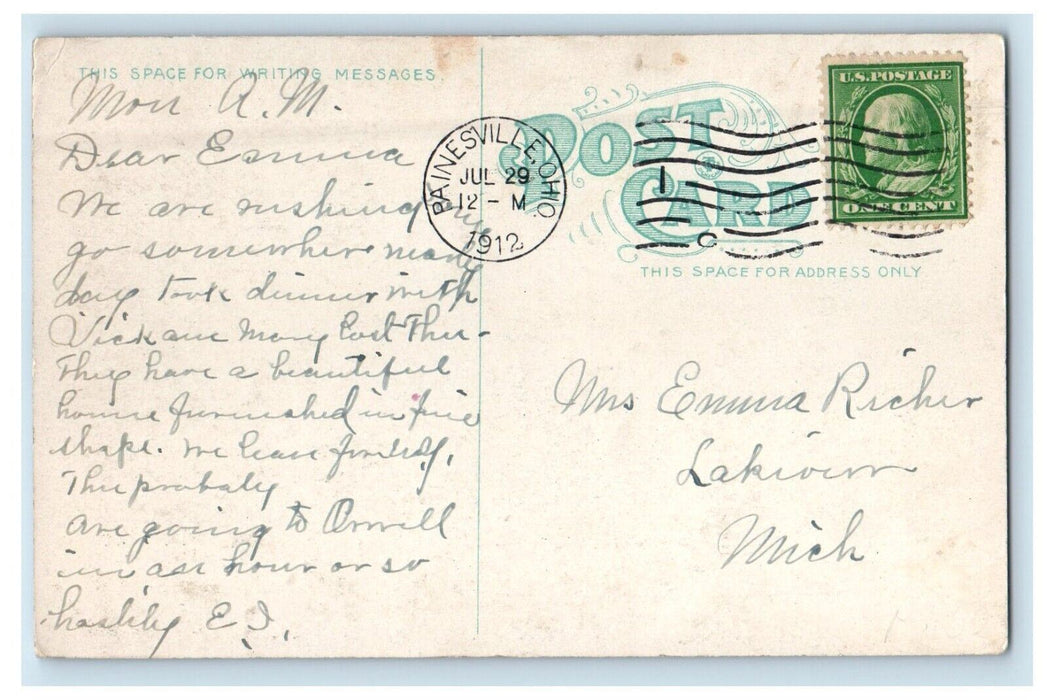 THIS SPACE FOR WRITING MESSAGES.
Mon A.M.
Dear Emma
We are rushing
go somewhere
day took dinner with
Vick and Mary last Thu-
They have a beautiful
home furnished in fine
shape. We leave for
Thu probaly
are going to Orwell
in an hour or so
hastily E. I.
PAINESVILLE, OHIO.
JUL 29
12 - M
1912
POST
CARD
1
C
U.S. POSTAGE
ONE CENT
THIS SPACE FOR ADDRESS ONLY
Mrs Emma Richer
Lakeview
Mich